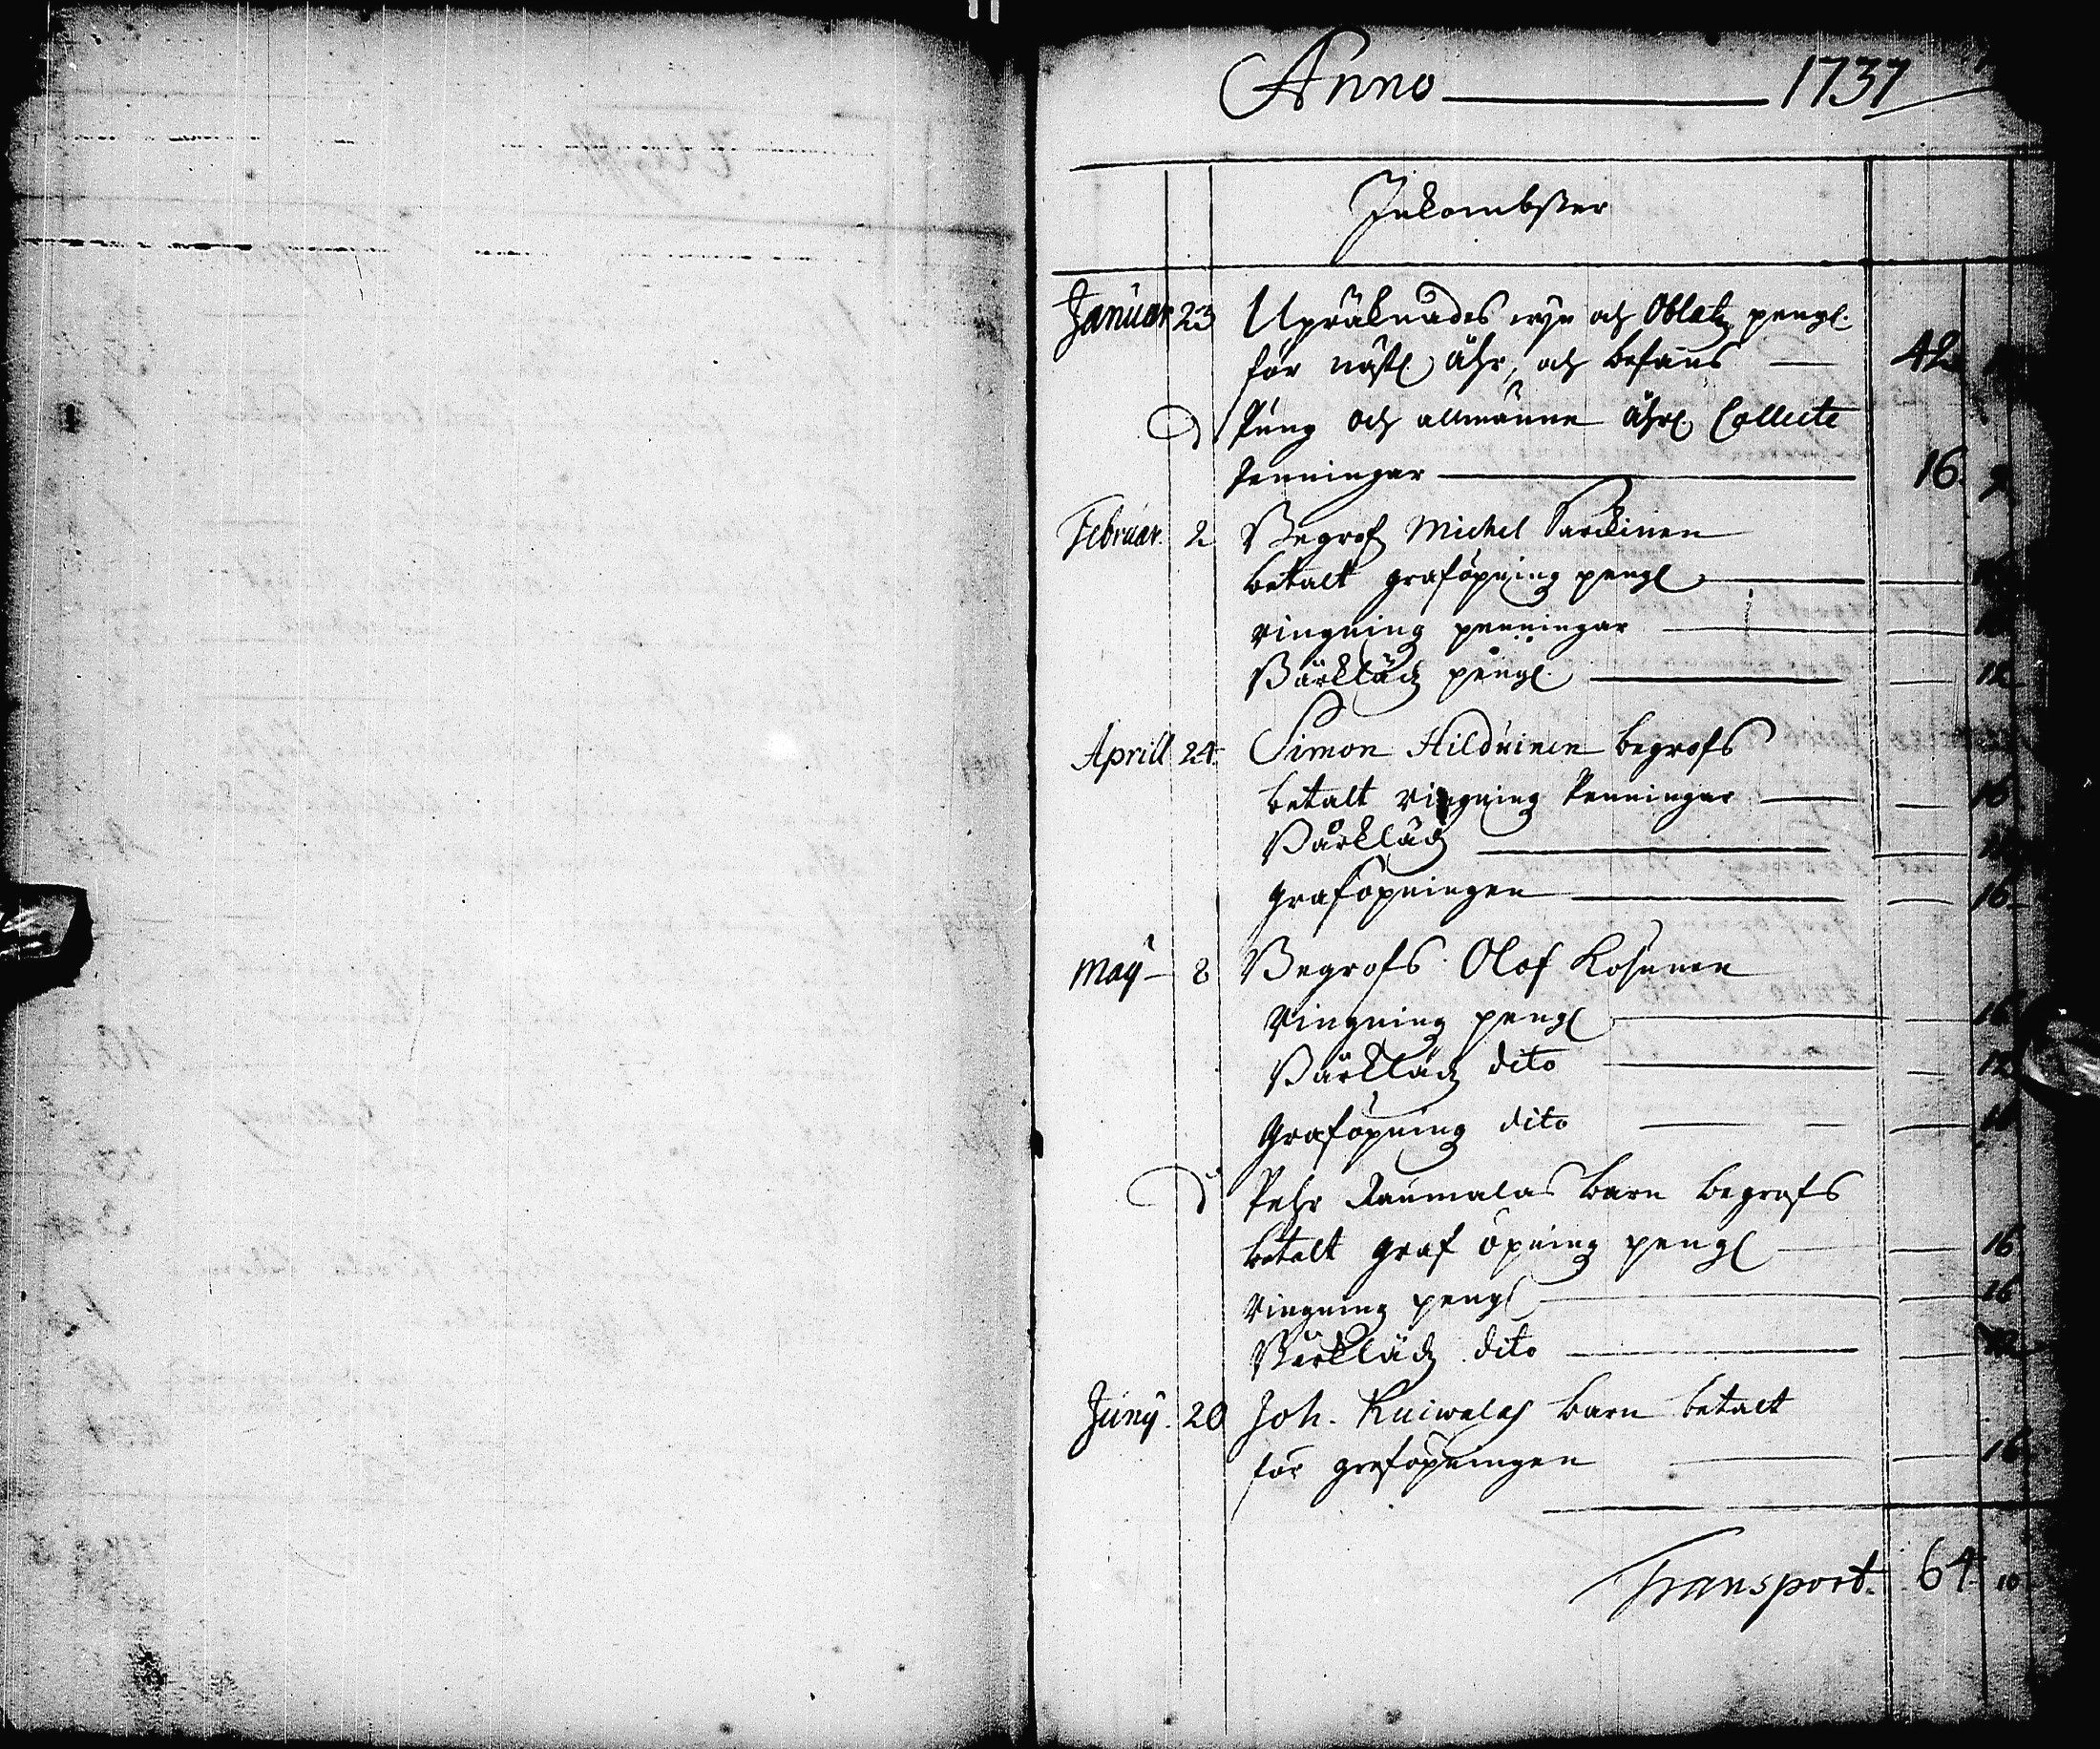 Anno 1737
Inkombster
Januar 23 Upräknades wyn och Oblatz pengl.
för nästl. Åhr, och befans — 42
D Pung och allmänne Åhrl. Collecte
Penningar — 16.
Februar. 2 Begrofs Michel Parckinen
betalt graföpning pengl —
ringning penningar —
Bårkläd pengl. — 12
Aprill 24. Simon Hilduinen begrofs
betalt ringning Penningar — 16
Bårkläd —
graföpningen — 16
Maÿ — 8 Begrofs Olof Kosunen
Ringning pengl — 16
Bårkläd dito — 12
Graföpning dito — 16
D Pehr Raumalas barn begrofs
betalt graf öpning pengl — 16
Ringning pengl — 16
Bårkläd dito — 12
Junÿ. 20 Joh. Kuiwalas barn betalt
för graföpningen — 16
Transport. 64 10